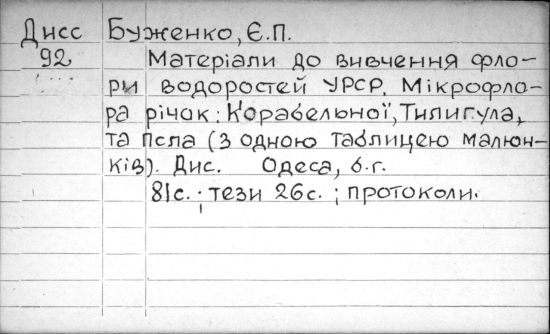 Дисс Буженко, Є.П.
92 Матеріали до вивчення фло-
ри водоростей УРСР. Мікрофло-
ра річок: Корабельної, Тилигула,
та Псла (з одною таблицею малюн-
ків). Дис. Одеса, б.г.
81с.; тези 26с.; протоколи.